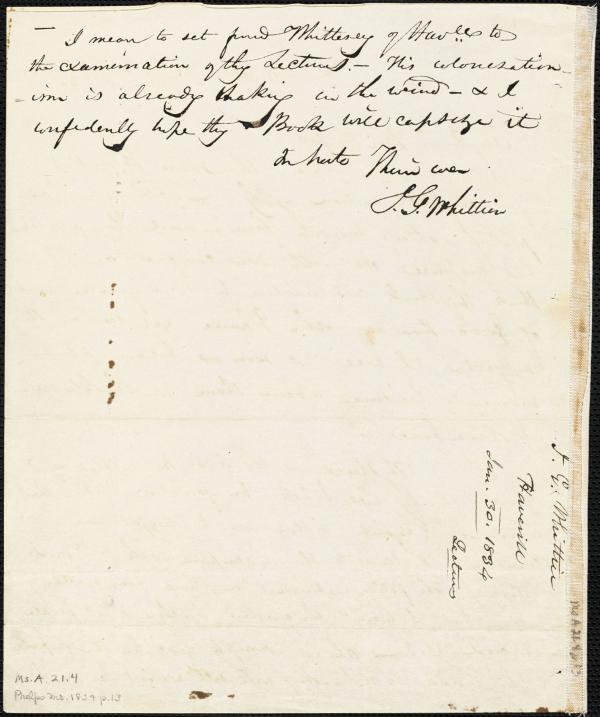 – I mean to set friend Whittlesey of Hav'll to
the examination of thy Lectures. – His colonization-
ism is already shaking in the wind – & I
confidently hope thy Book will capsize it
In haste Thine ever
J. G. Whittier
J. G. Whittier
Haverhill
Jan. 30. 1834
Lectures
Ms. A. 21.4
Phelps Ms. 1834 p.13
Ms A 21.4 p 13